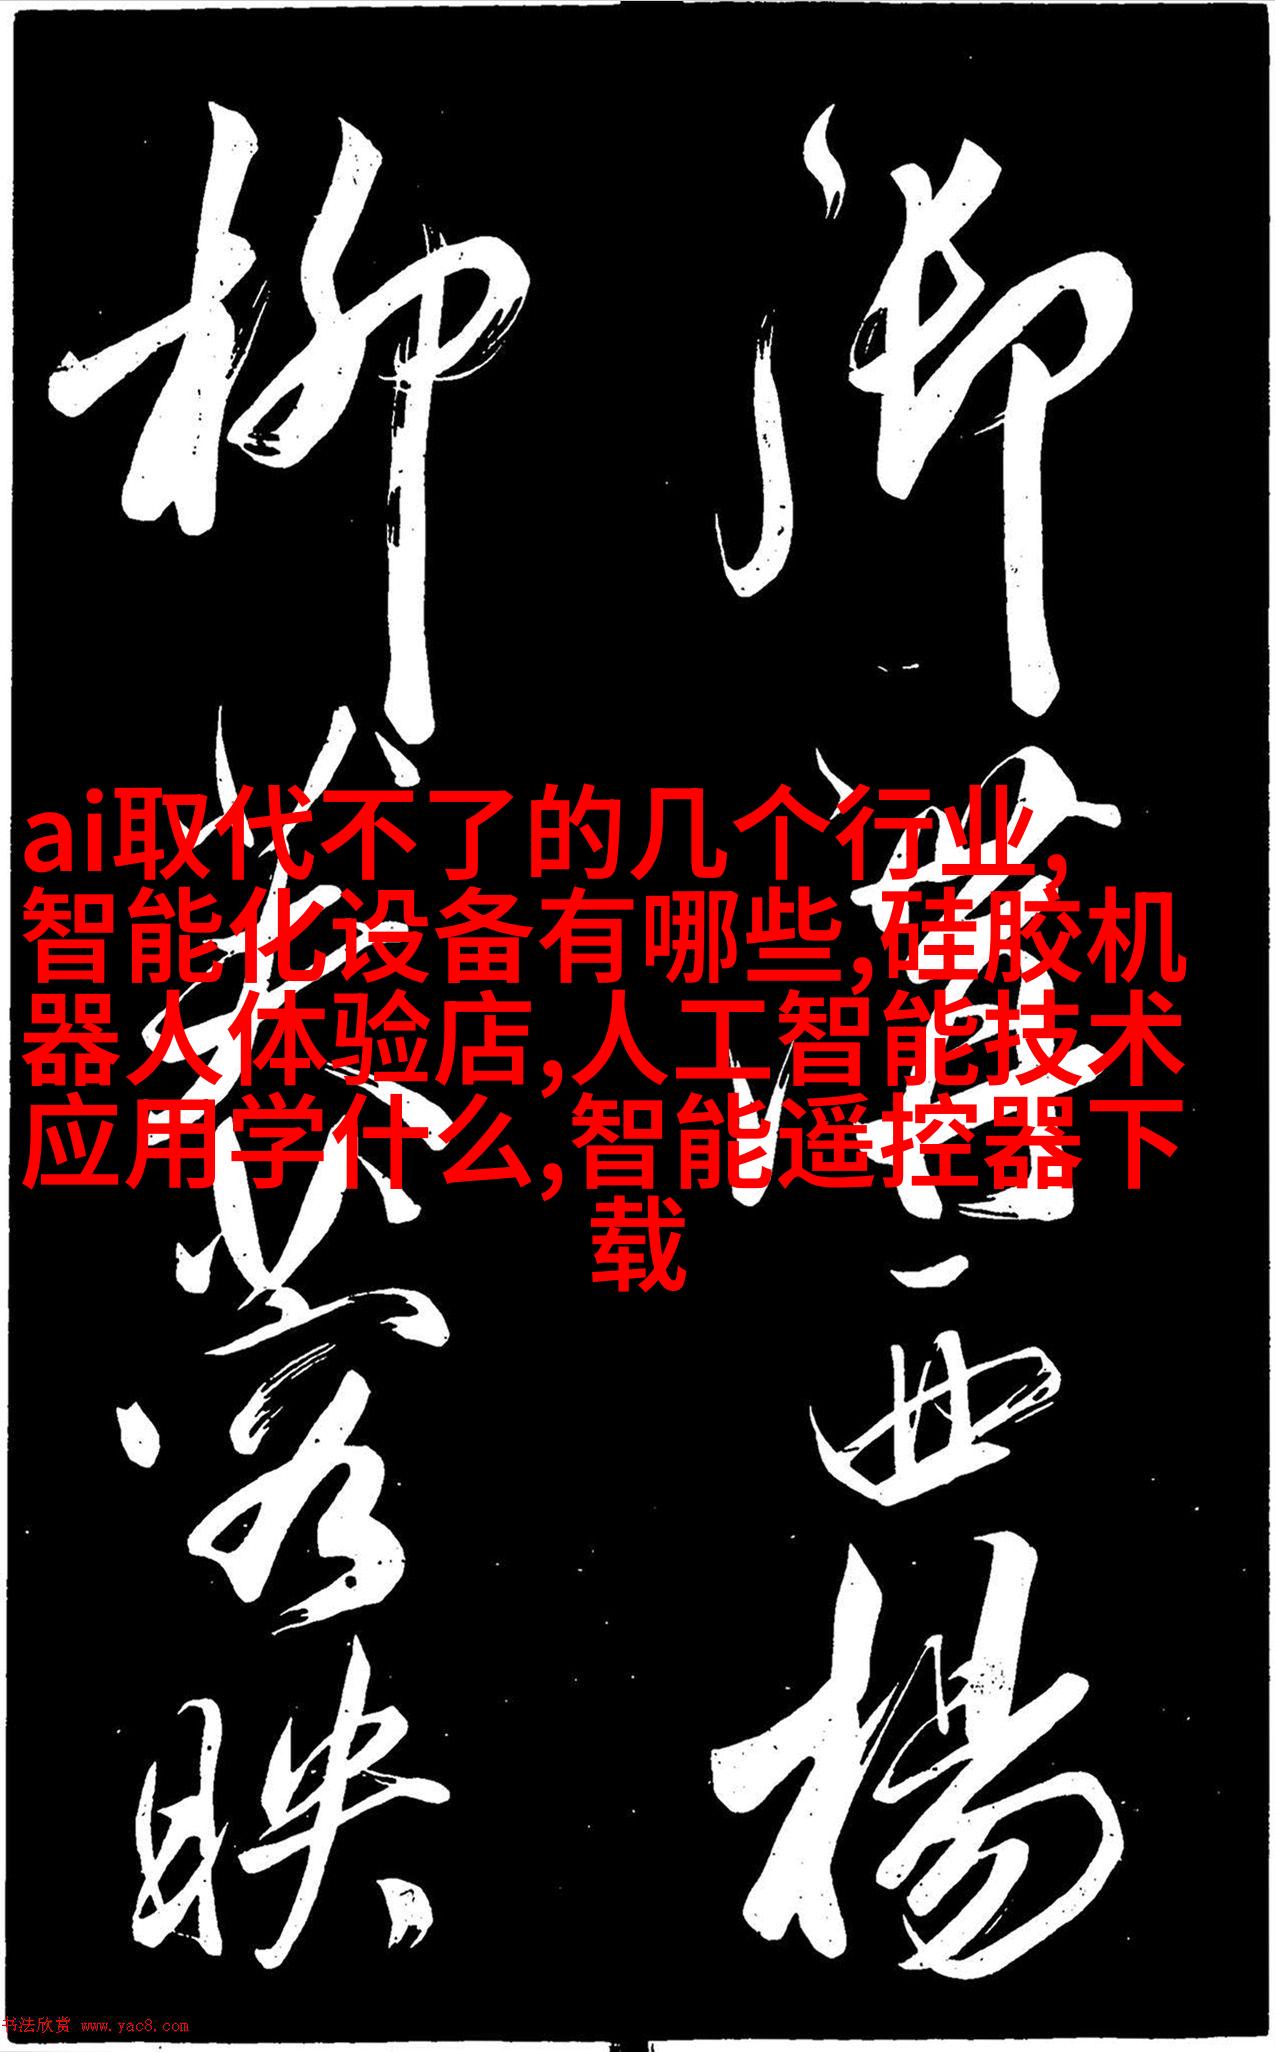 ai取代不了的几个行业,
智能化设备有哪些,硅胶机
器人体验店,人工智能技术
应用学什么,智能遥控器下
载
西楊
柳
落映
书法欣赏 www.yac8.com